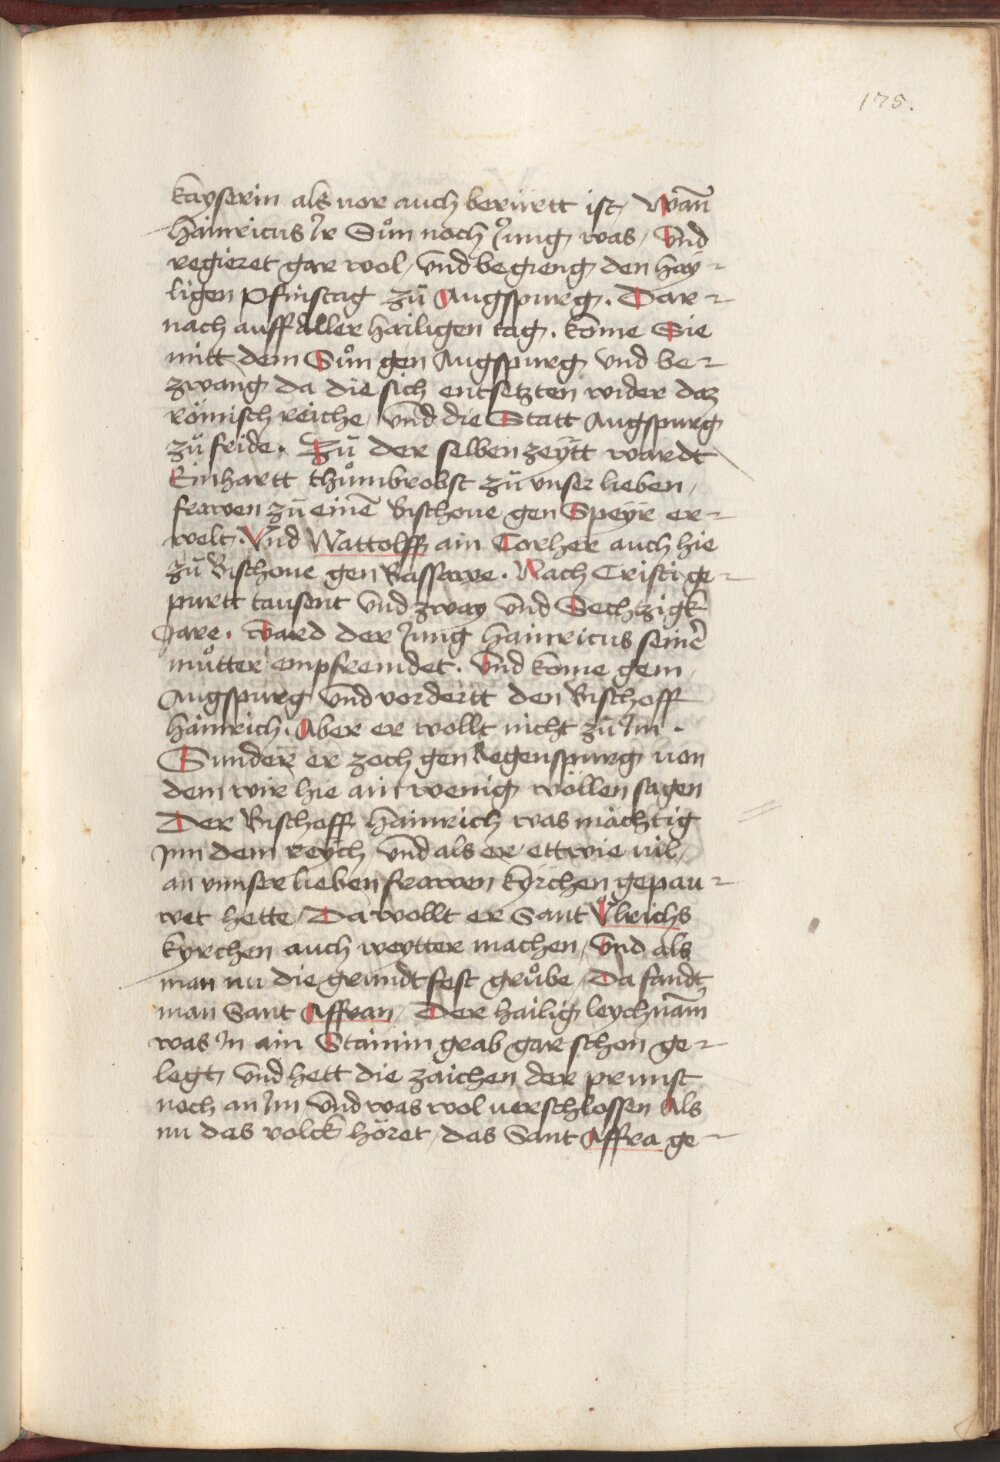 175.
kayserin als vor auch berürtt ist, Wañ
Hainricus Ir Sůn noch Jung was, Vnd
regieret gar wol, vnd begieng den hay-
ligen Pfinstag zů Augspurg. Dar-
nach auff Aller hailigen tag. kome Sie
mitt dem Sůn gen Augspurg vnd be-
zwang da die sich entsetzten wider daz
römisch reiche, vnd die Statt Augspurg
zů fride. Zů der selben zeÿtt wardt
Einhartt thůmbrobst zů vnser lieben,
frawen zů einē Bischoue gen Speÿr er-
welt. Vnd Wattolff ain Corher auch hie
zů Bischoue gen Bassawe. Nach Cristi ge-
purtt tausent vnd zway vnd Sechzigk
Jare. Ward der Jung Hainricus seinē
můtter empfremdet. Vnd kome gem,
Augspurg vnd vordertt den Bischoff
Hainrich. Aber er wollt nicht zů Im.
Sunder er zoch gen Regenspurg von
dem wir hie ain wenig wöllen sagen
Der Bischoff Hainrich was mächtig
Inn dem reÿch vnd als er ettwie vil,
an vnnser lieben frawen kÿrchen gepau-
wet hette, Da wollt er Sant Vlrichs
kyrchen auch weytter machen, Vnd als
man nu die grundtfest grůbe, Da fandt
man Sant Affran, Der hailig leychnam̃
was In ain Stainin grab gar schon ge-
legt, vnd hett die zaichen der prunst
noch an Im vnd was wol verschlossen Als
nu das volck höret, das Sant Affra ge-